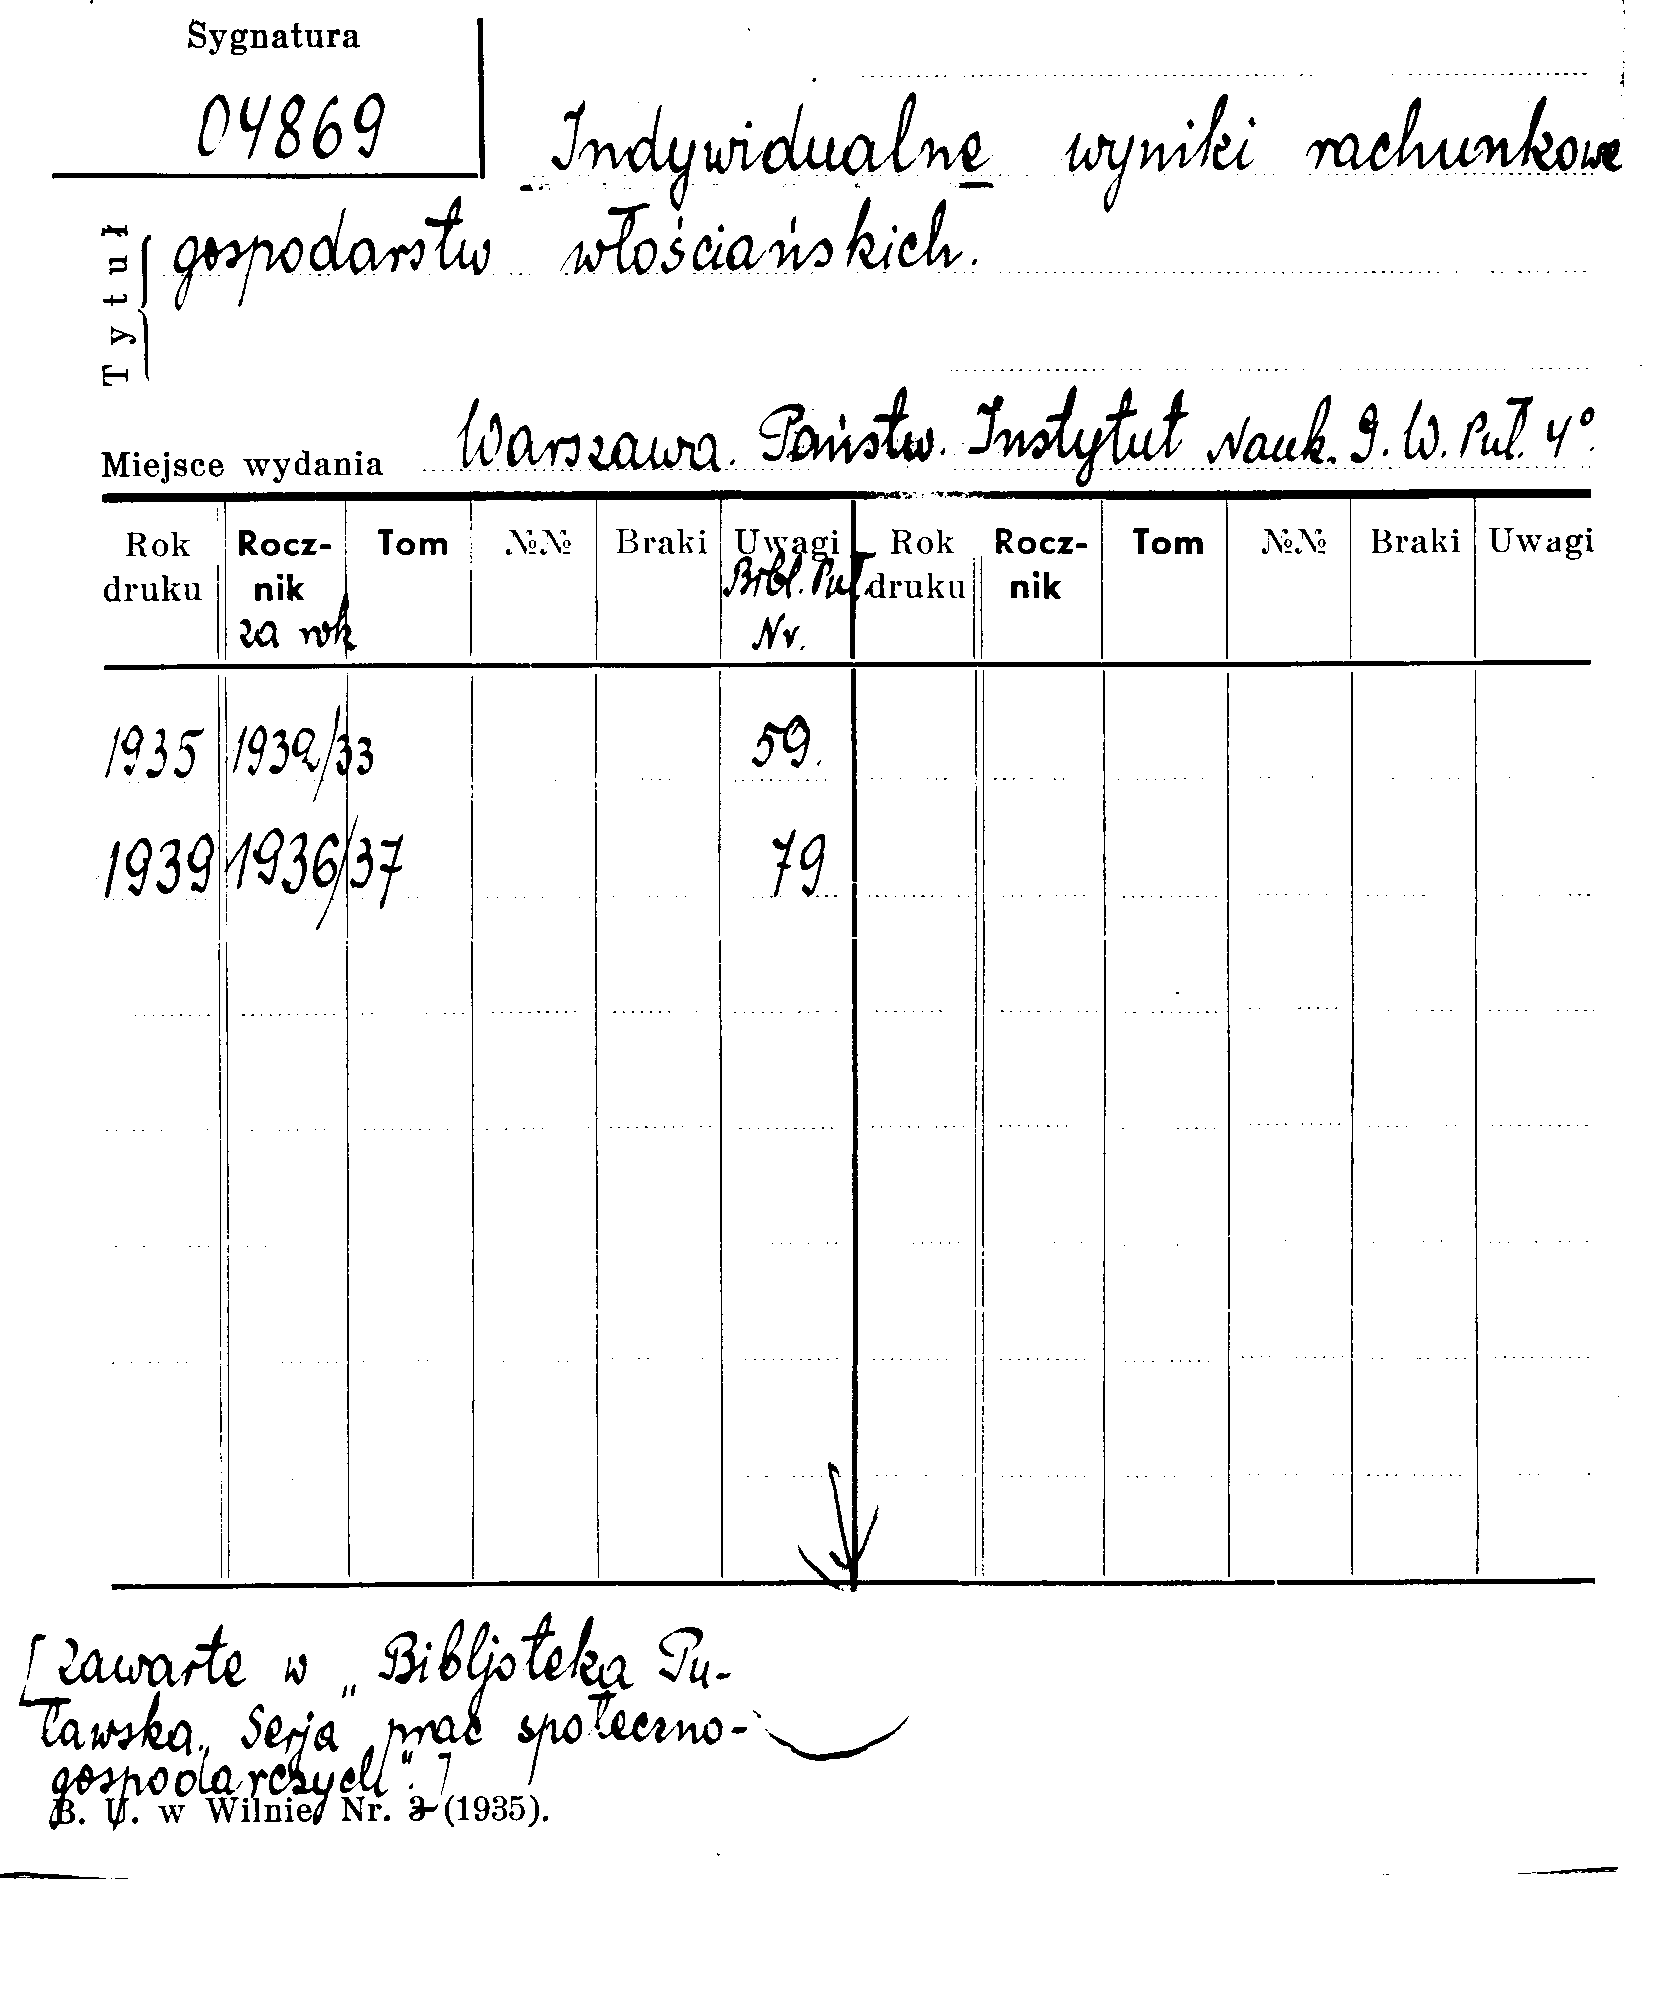 Sygnatura
04869
Indywidualne wyniki rachunkowe
Tytuł
gospodarstw włościańskich.
Miejsce wydania Warszawa. Państw. Instytut Nauk. G. W. Puł. 4°.
Rok druku Rocz-nik za rok Tom №№ Braki Uwagi Bibl. Puł. Nr. Rok druku Rocz-nik Tom №№ Braki Uwagi
1935 1932/33 59.
1939 1936/37 79
[Zawarte w „Bibljoteka Pu-
ławska. Serja prac społeczno-
gospodarczych".]
B. U. w Wilnie, Nr. 3 (1935).